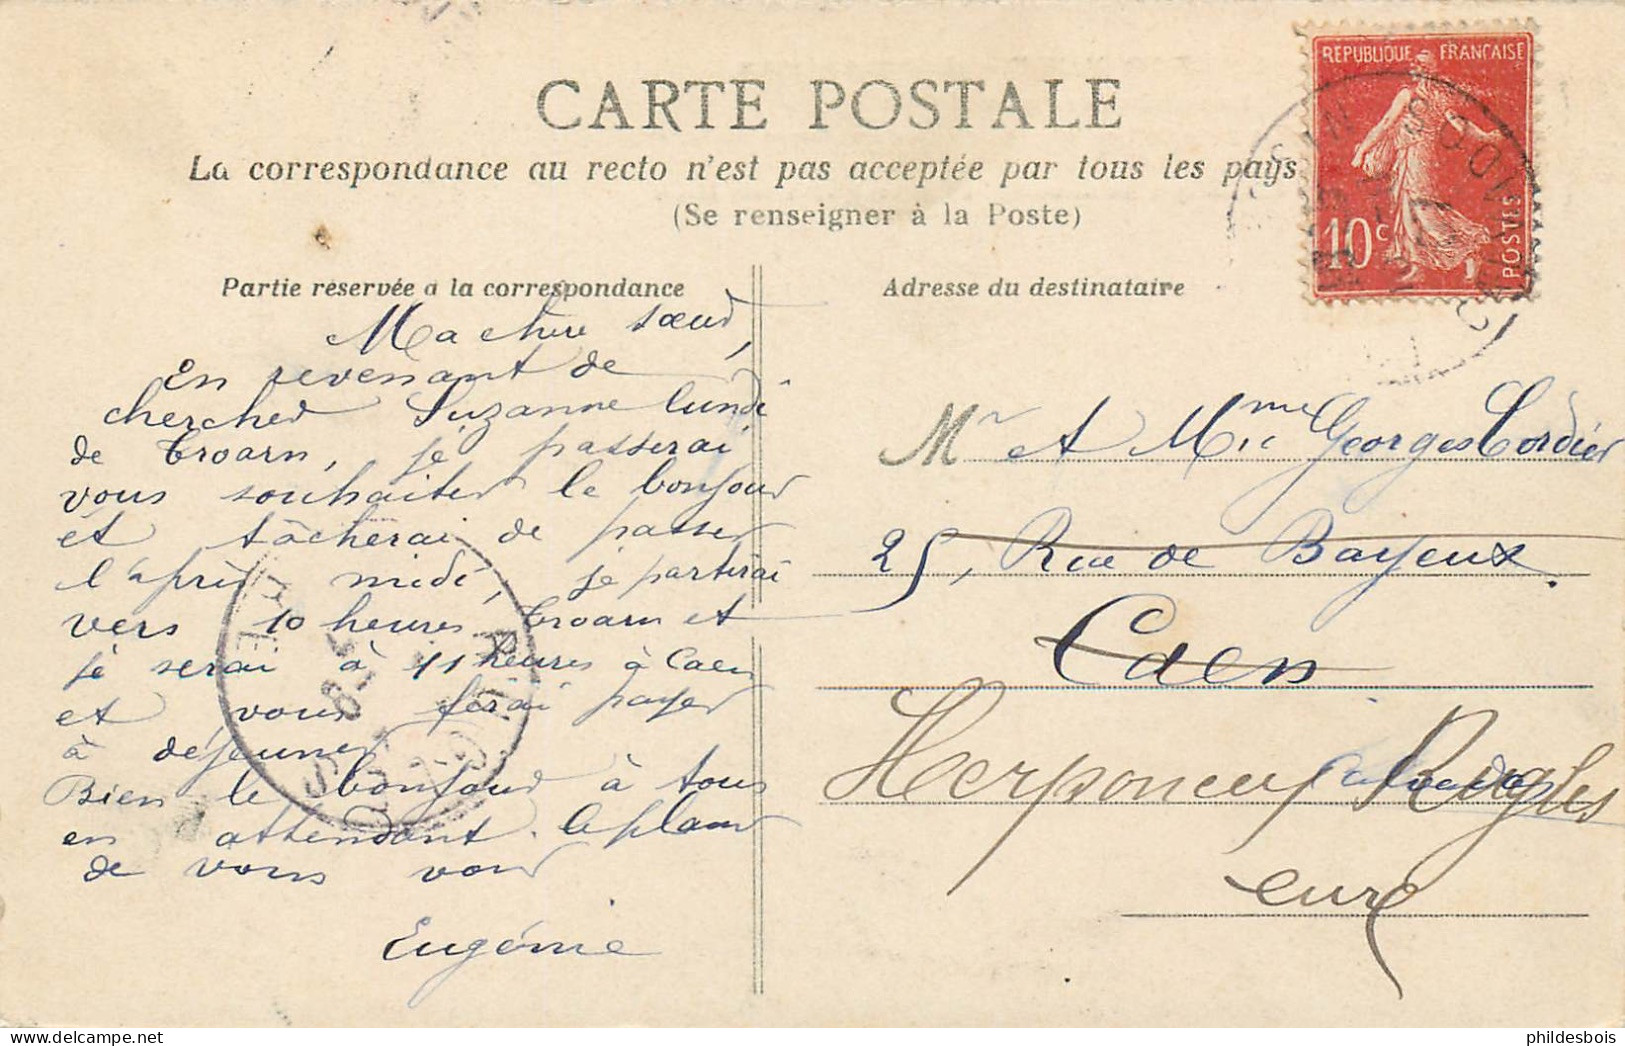 CARTE POSTALE
La correspondance au recto n'est pas acceptée par tous les pays
(Se renseigner à la Poste)
REPUBLIQUE FRANÇAISE
10c
POSTES
Partie réservée à la correspondance
Adresse du destinataire
Ma chère sœur,
En revenant de
chercher Suzanne lundi
de Troarn, je passerai
vous souhaiter le bonjour
et tâcherai de passer
l'après midi, je partirai
vers 10 heures Troarn et
je serai à 11 heures à Caen
et vous ferai payer
à déjeuner
Bien le bonjour à tous
en attendant le plaisir
de vous voir
Eugénie
Mr et Mme Georges Cordier
25, Rue de Bayeux.
Caen
Calvados
Herponcey Rugles
eure
delcampe.net
phildesbois